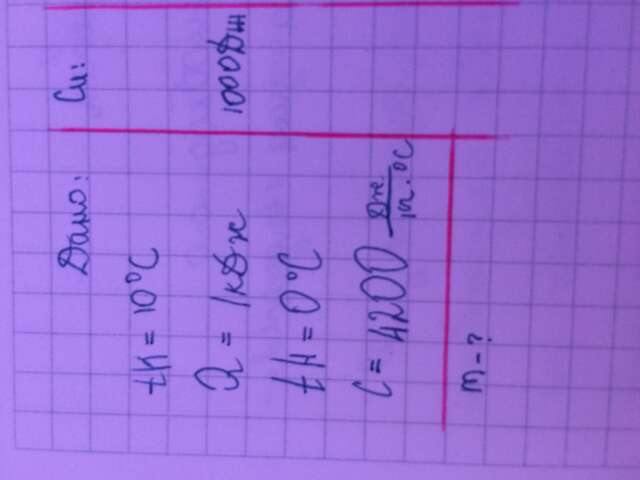 Дано:
tк = 10°C
Q = 1кДж
tн = 0°C
C = 4200 Дж/кг·°C
m - ?
Си:
1000Дж